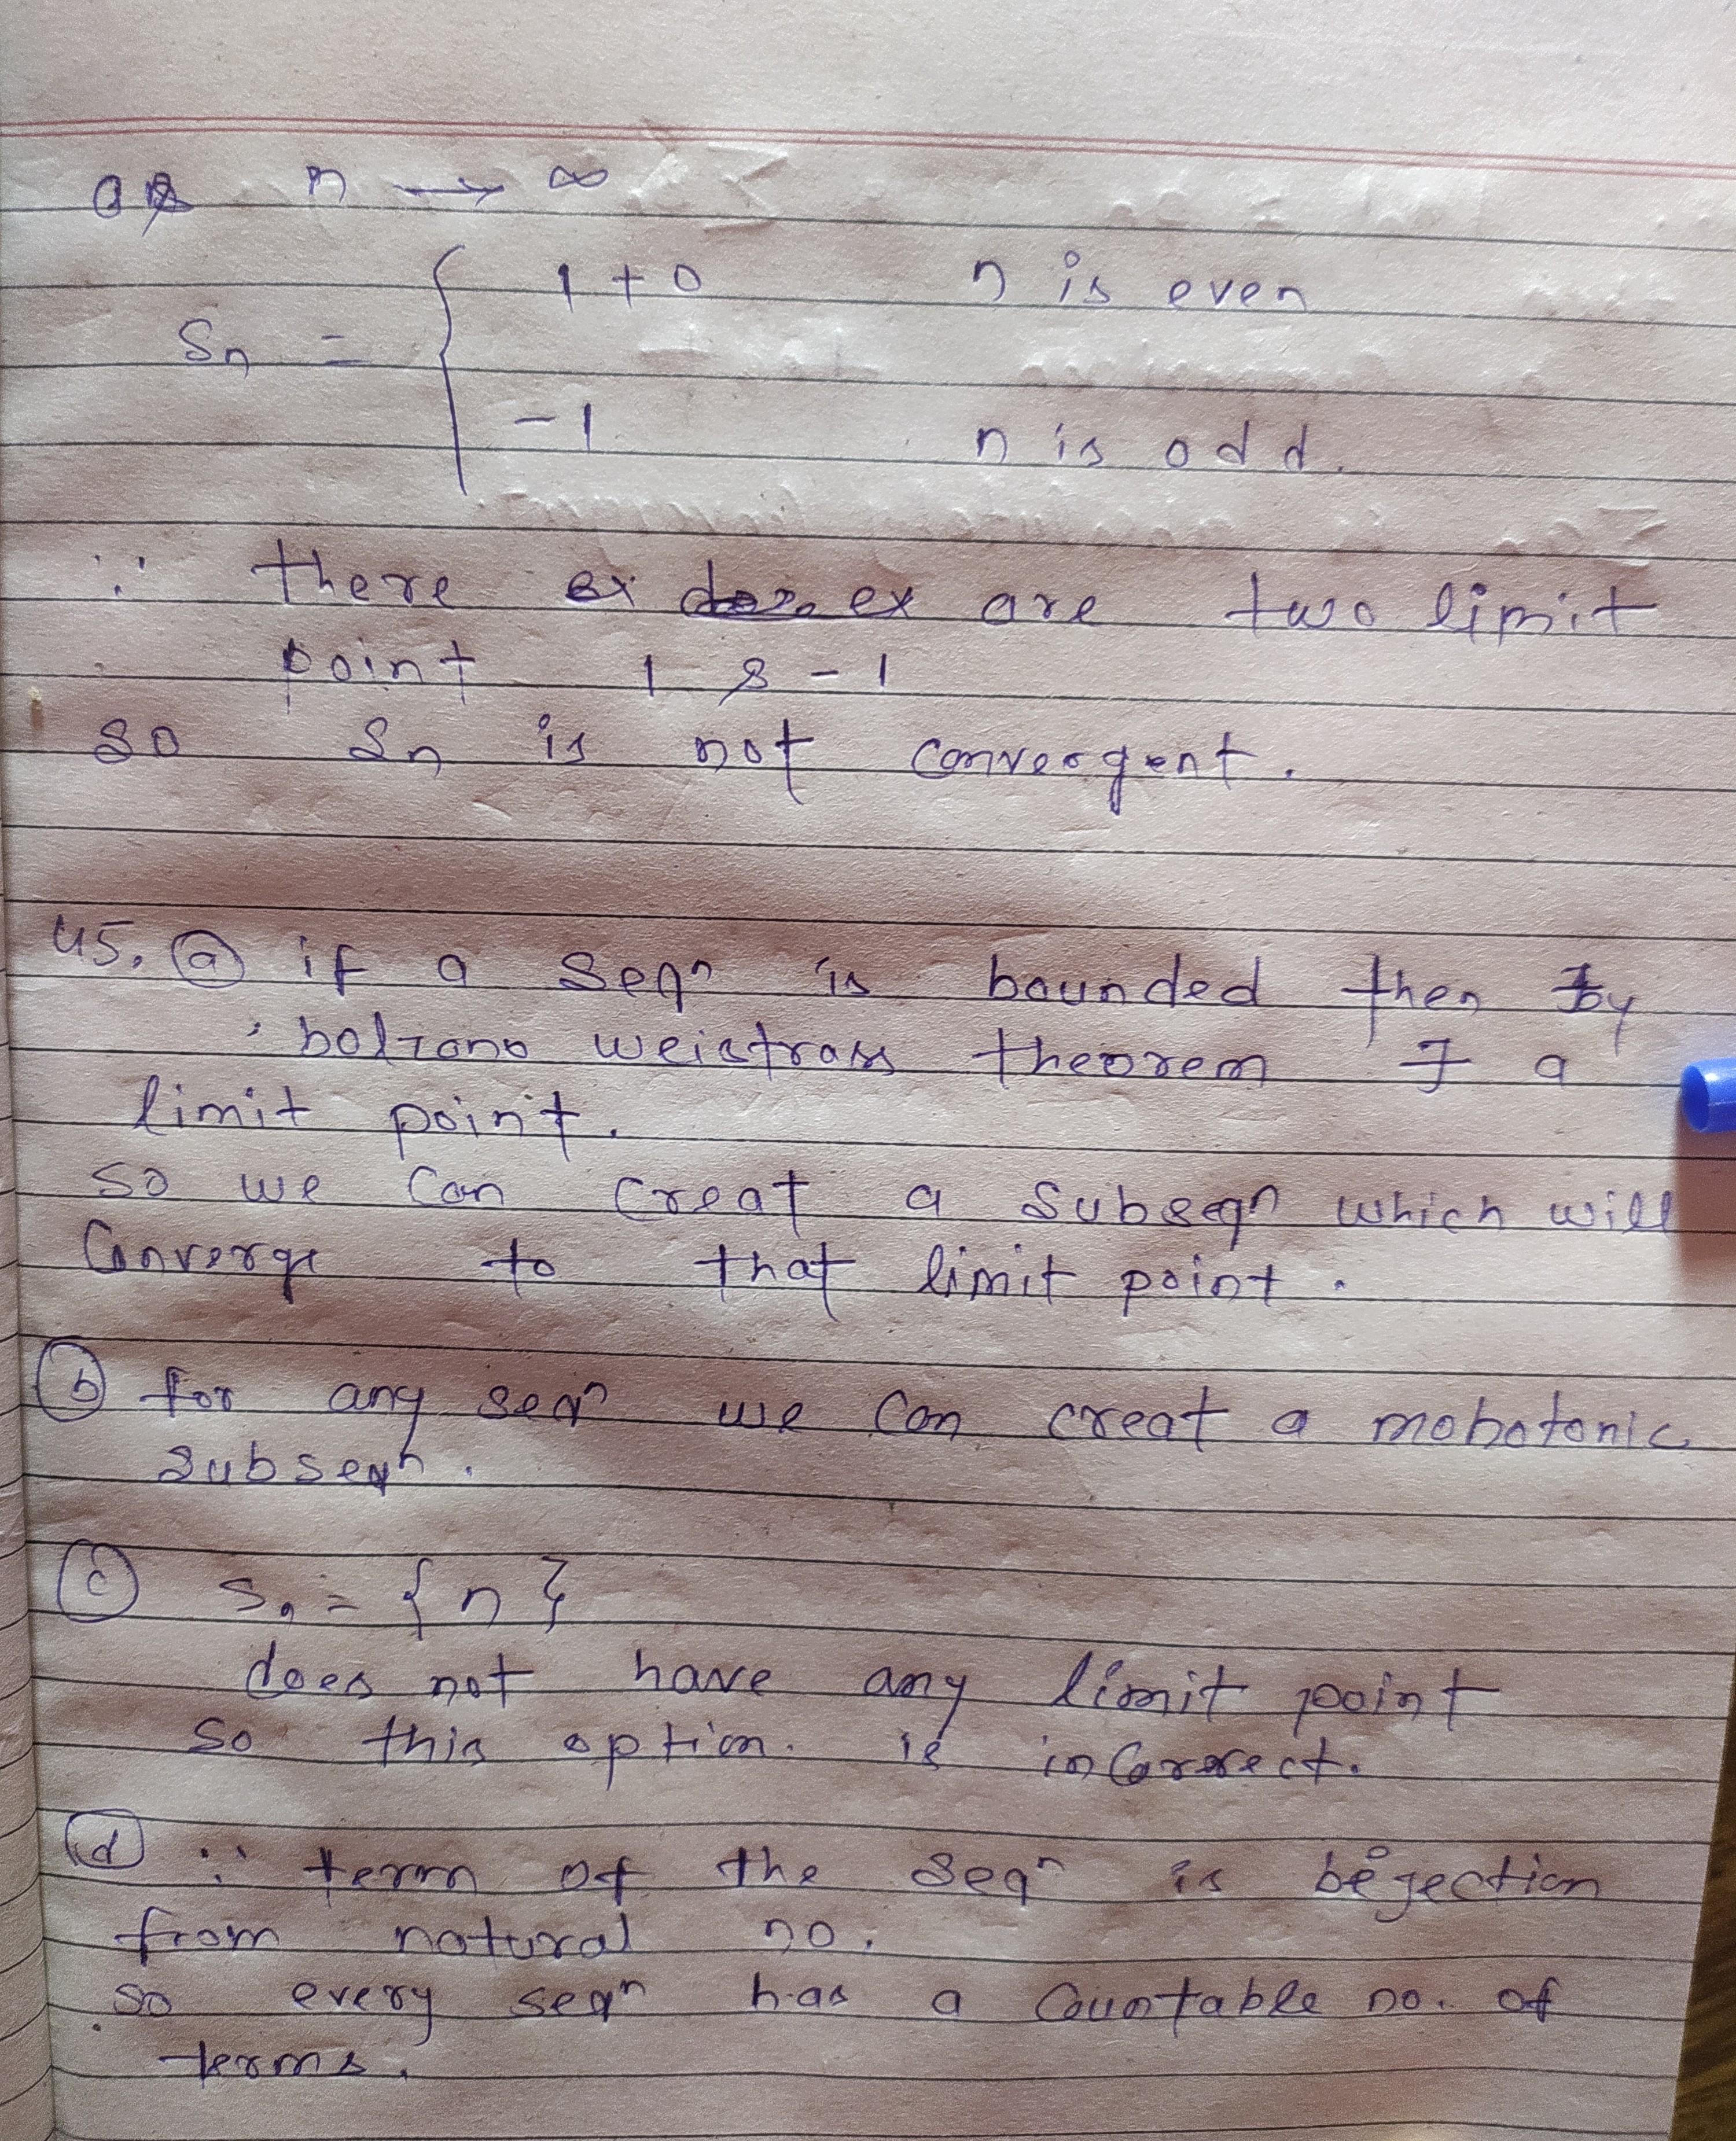 as n → ∞
Sn = { 1 + 0 n is even
-1 n is odd.
∵ there ex are two limit
point 1 & -1
so Sn is not convergent.
45. (a) if a seqn is bounded then by
bolzano weistrass theorem ∃ a
limit point.
so we can creat a subseqn which will
Converge to that limit point.
(b) for any seqn we can creat a mobotonic
subseqn.
(c) Sn = {n}
does not have any limit point
so this option. is incorrect.
(d) ∵ term of the seqn is bejection
from natural no.
so every seqn has a Countable no. of
terms.